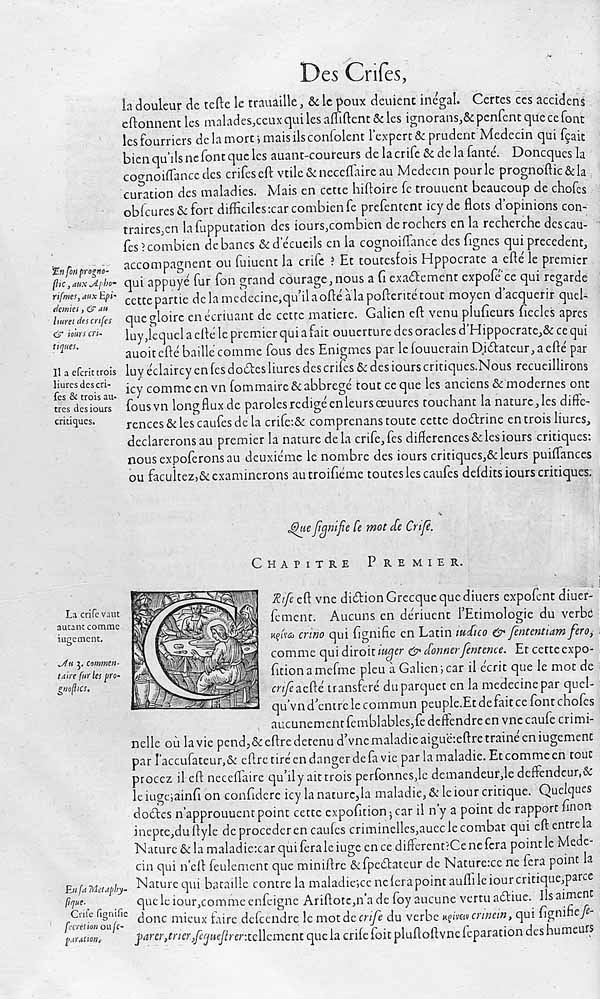 Des Criſes,
la douleur de teſte le trauaille, & le poux deuient inégal. Certes ces accidens
eſtonnent les malades, ceux qui les aſſiſtent & les ignorans, & penſent que ce ſont
les fourriers de la mort; mais ils conſolent l'expert & prudent Medecin qui ſçait
bien qu'ils ne ſont que les auant-coureurs de la criſe & de la ſanté. Doncques la
cognoiſſance des criſes eſt vtile & neceſſaire au Medecin pour le prognoſtic & la
curation des maladies. Mais en cette hiſtoire ſe trouuent beaucoup de choſes
obſcures & fort difficiles: car combien ſe preſentent icy de flots d'opinions con-
traires, en la ſupputation des iours, combien de rochers en la recherche des cau-
ſes? combien de bancs & d'écueils en la cognoiſſance des ſignes qui precedent,
accompagnent ou ſuiuent la criſe? Et toutesfois Hppocrate a eſté le premier
qui appuyé ſur ſon grand courage, nous a ſi exactement expoſé ce qui regarde
cette partie de la medecine, qu'il a oſté à la poſterité tout moyen d'acquerir quel-
que gloire en écriuant de cette matiere. Galien eſt venu pluſieurs ſiecles apres
luy, lequel a eſté le premier qui a fait ouuerture des oracles d'Hippocrate, & ce qui
auoit eſté baillé comme ſous des Enigmes par le ſouuerain Dictateur, a eſté par
luy éclaircy en ſes doctes liures des criſes & des iours critiques. Nous recueillirons
icy comme en vn ſommaire & abbregé tout ce que les anciens & modernes ont
ſous vn long flux de paroles redigé en leurs œuures touchant la nature, les diffe-
rences & les cauſes de la criſe: & comprenans toute cette doctrine en trois liures,
declarerons au premier la nature de la criſe, ſes differences & les iours critiques:
nous expoſerons au deuxiéme le nombre des iours critiques, & leurs puiſſances
ou facultez, & examinerons au troiſiéme toutes les cauſes deſdits iours critiques.
En ſon progno-
ſtic, aux Apho-
riſmes, aux Epi-
demies, & au
liures des criſes
& iours cri-
tiques.
Il a eſcrit trois
liures des cri-
ſes & trois au-
tres des iours
critiques.
Que ſignifie le mot de Criſe.
CHAPITRE PREMIER.
CRiſe eſt vne diction Grecque que diuers expoſent diuer-
ſement. Aucuns en dériuent l'Etimologie du verbe
κρίνω crino qui ſignifie en Latin iudico & ſententiam fero,
comme qui diroit iuger & donner ſentence. Et cette expo-
ſition a meſme pleu à Galien; car il écrit que le mot de
criſe a eſté transferé du parquet en la medecine par quel-
qu'vn d'entre le commun peuple. Et de fait ce ſont choſes
aucunement ſemblables, ſe deffendre en vne cauſe crimi-
nelle où la vie pend, & eſtre detenu d'vne maladie aiguë: eſtre trainé en iugement
par l'accuſateur, & eſtre tiré en danger de ſa vie par la maladie. Et comme en tout
procez il eſt neceſſaire qu'il y ait trois perſonnes, le demandeur, le deffendeur, &
le iuge; ainſi on conſidere icy la nature, la maladie, & le iour critique. Quelques
doctes n'approuuent point cette expoſition; car il n'y a point de rapport ſinon
inepte, du ſtyle de proceder en cauſes criminelles, auec le combat qui eſt entre la
Nature & la maladie: car qui ſera le iuge en ce different? Ce ne ſera point le Mede-
cin qui n'eſt ſeulement que miniſtre & ſpectateur de Nature: ce ne ſera point la
Nature qui bataille contre la maladie; ce ne ſera point auſſi le iour critique; parce
que le iour, comme enſeigne Ariſtote, n'a de ſoy aucune vertu actiue. Ils aiment
donc mieux faire deſcendre le mot de criſe du verbe κρίνειν crinein, qui ſignifie ſe-
parer, trier, ſequeſtrer: tellement que la criſe ſoit pluſtoſt vne ſeparation des humeurs
La criſe vaut
autant comme
iugement.
Au 3. commen-
taire ſur les pro-
gnoſtics.
En ſa Metaphy-
ſique.
Criſe ſignifie
ſecretion ou ſe-
paration.